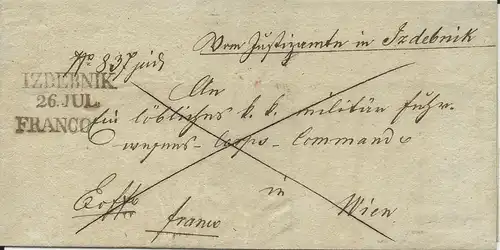 Vom Justizamte in Izdebnik
No 837 jud
IZDEBNIK.
26. JUL.
FRANCO
An
Ein löbliches k. k. militär fuhr-
wesens-Corps-Commando
in
Wien
Exoffo
franco